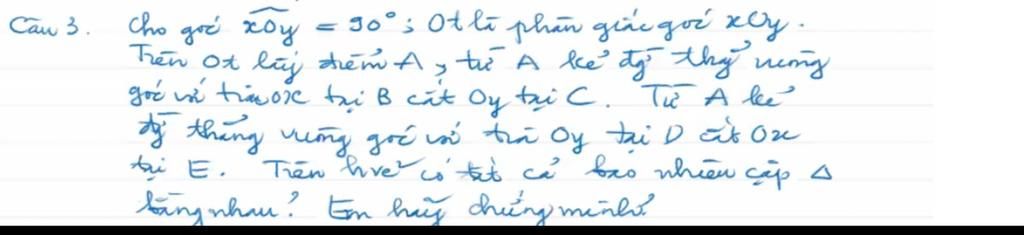 Câu 3. Cho góc xOy = 90°; Ot là phân giác góc xOy.
Trên Ot lấy điểm A, từ A kẻ đg̃ thg̉ vuông
góc với tia Ox tại B cắt Oy tại C. Từ A kẻ
đg̃ thẳng vuông góc với tia Oy tại D cắt Ox
tại E. Trên hvẽ có tất cả bao nhiêu cặp Δ
bằng nhau? Em hãy chứng minh?